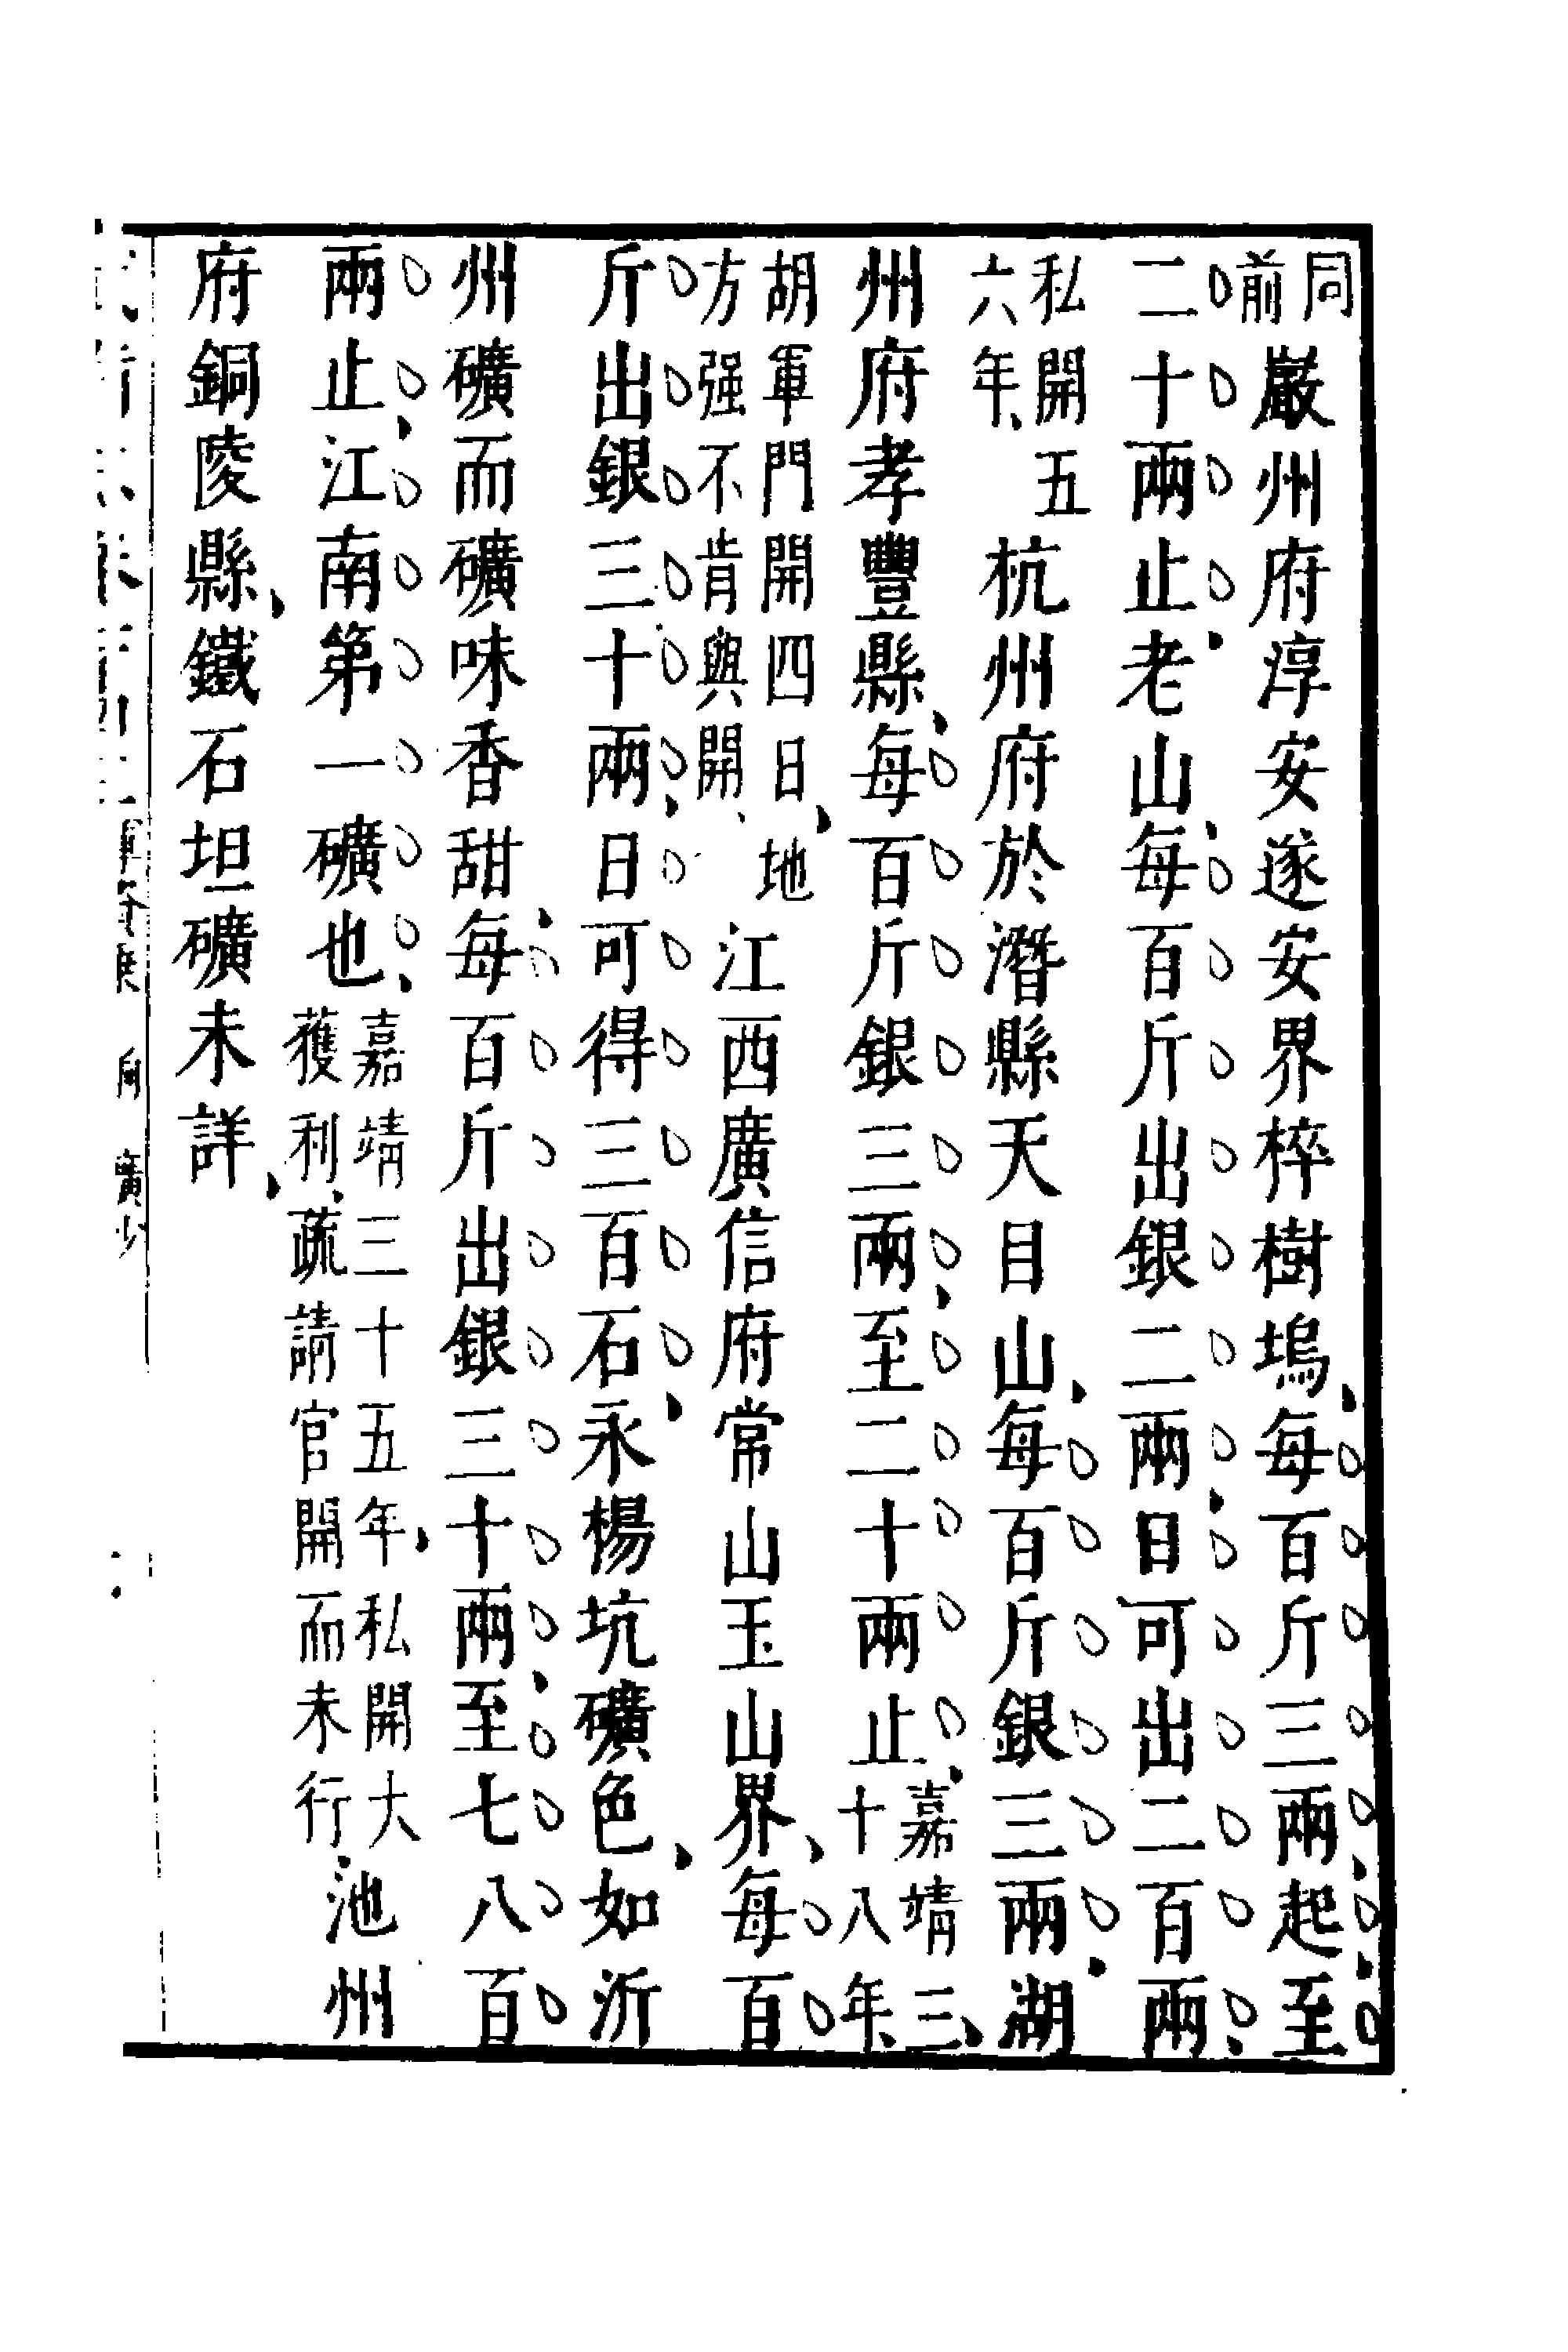 同前嚴州府淳安遂安界梓樹塢、每百斤三兩起、至
二十兩止、老山、每百斤出銀二兩、日可出二百兩、
私開五六年、杭州府於潛縣天目山、每百斤銀三兩、湖
州府孝豐縣、每百斤銀三兩、至二十兩止、嘉靖三、十八年、
胡軍門開四日、地方强不肯與開、江西廣信府常山玉山界、每百
斤出銀三十兩、日可得三百石、永楊坑礦色、如沂
州礦而礦味香甜、每百斤出銀三十兩、至七八百
兩止、江南第一礦也、嘉靖三十五年、私開大獲利、疏請官開而未行、池州
府銅陵縣、鐵石坦礦未詳、